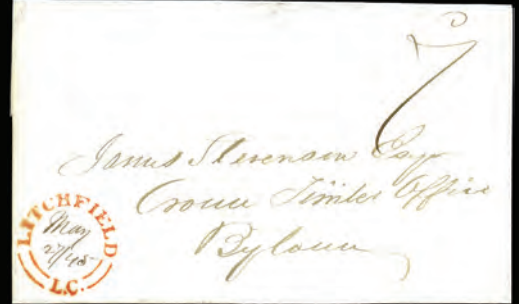 7
James Stevenson Esqr
Crown Timber Office
Bytown
LITCHFIELD
May
27/45
L.C.